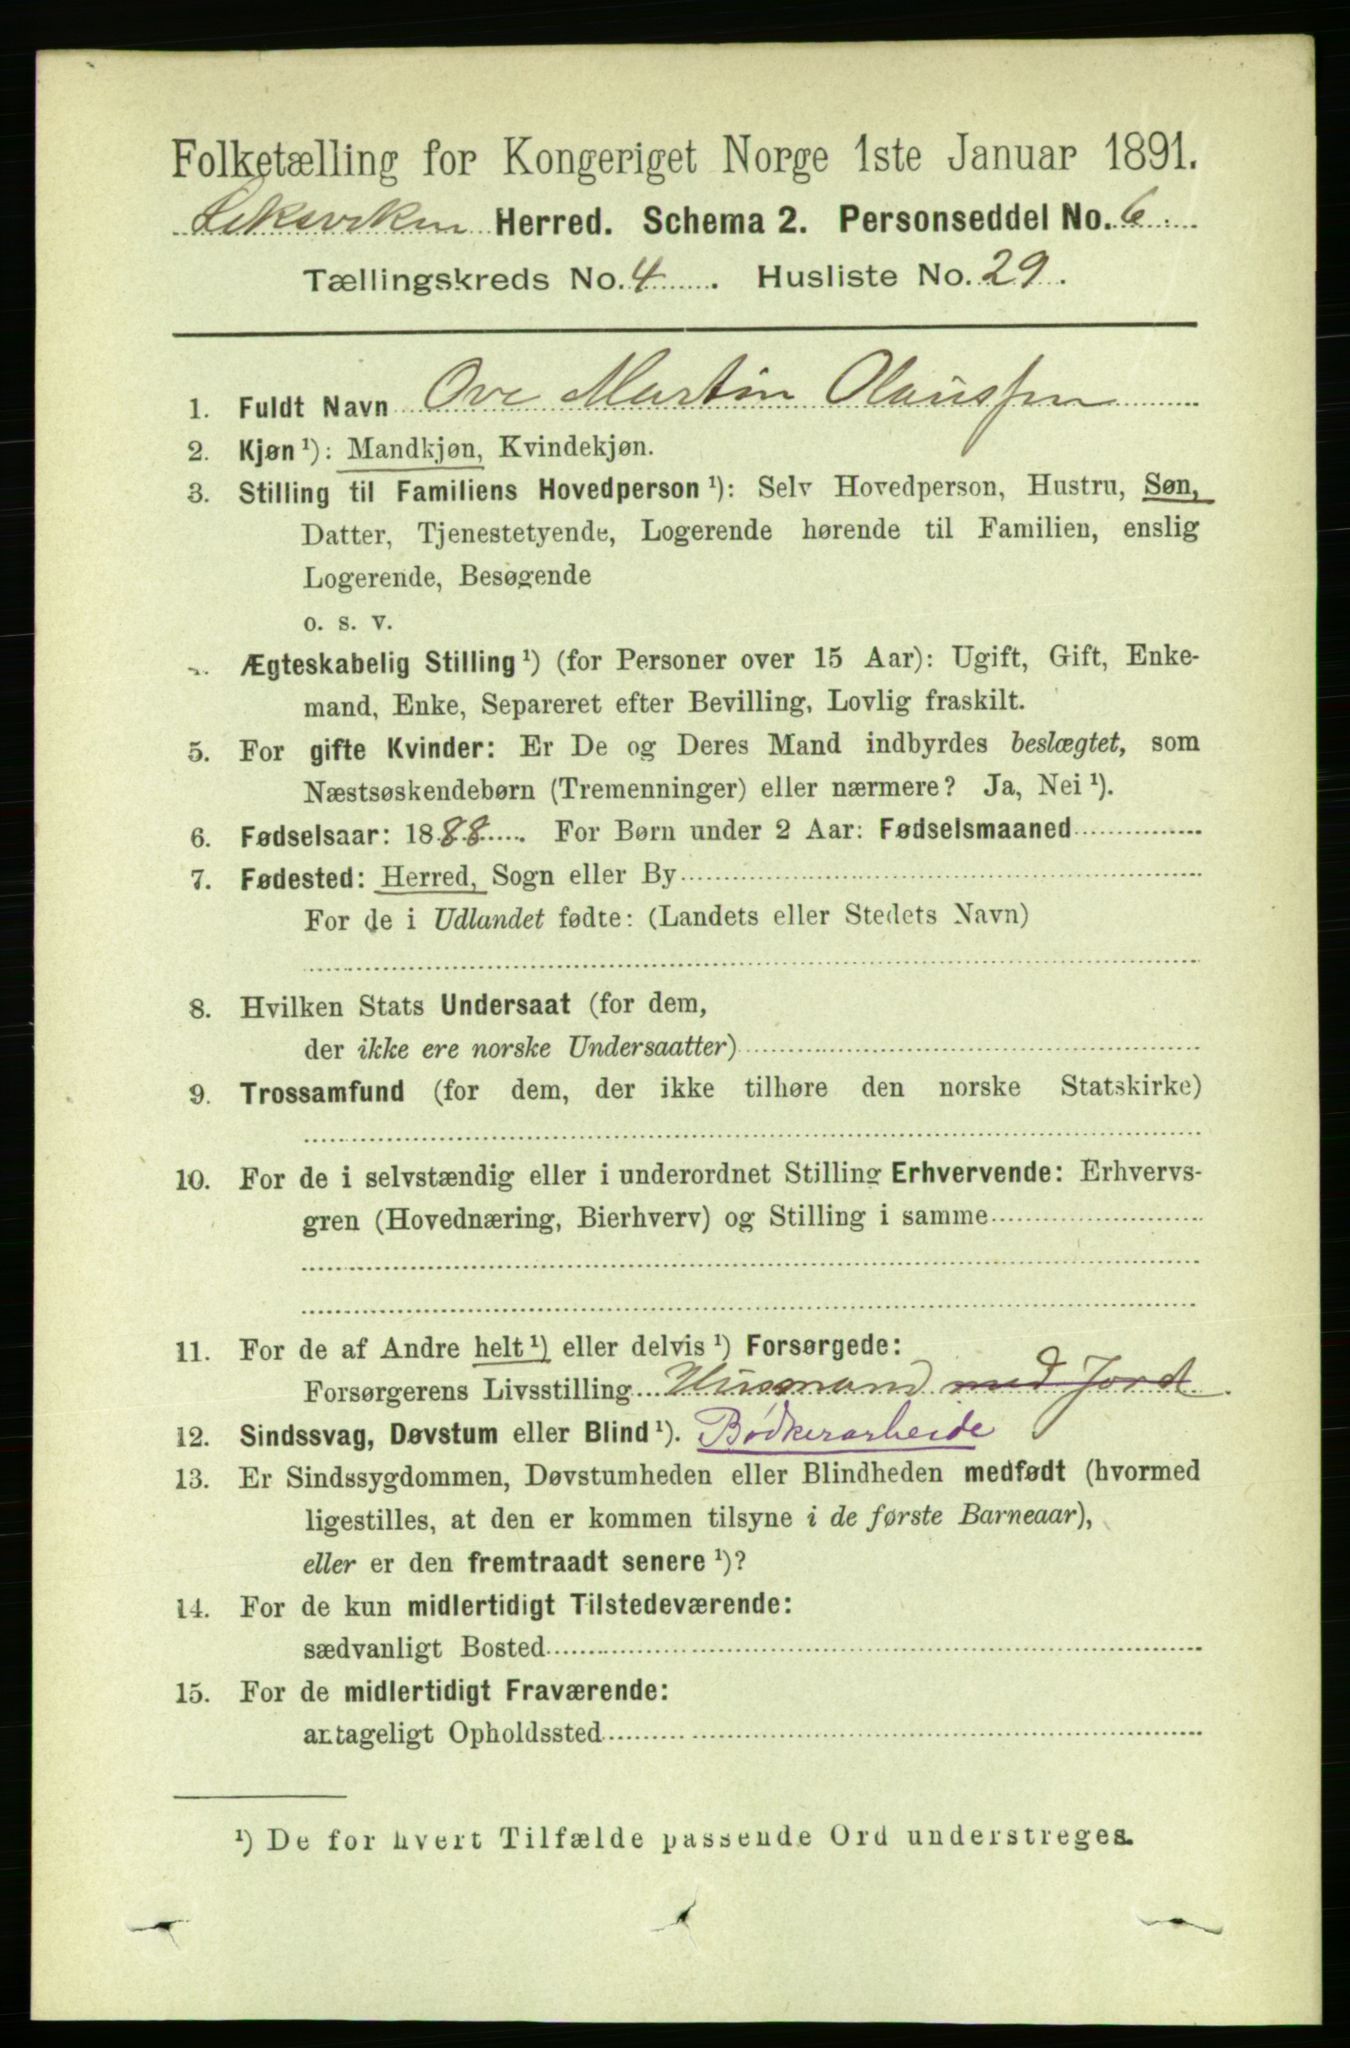 Folketælling for Kongeriget Norge 1ste Januar 1891.
Leksviken Herred. Schema 2. Personseddel No. 6.
Tællingskreds No. 4. Husliste No. 29.
1. Fuldt Navn Ove Martin Olaussen
2. Kjøn ¹): Mandkjøn, Kvindekjøn.
3. Stilling til Familiens Hovedperson ¹): Selv Hovedperson, Hustru, Søn,
Datter, Tjenestetyende, Logerende hørende til Familien, enslig
Logerende, Besøgende
o. s. v.
Ægteskabelig Stilling ¹) (for Personer over 15 Aar): Ugift, Gift, Enke-
mand, Enke, Separeret efter Bevilling, Lovlig fraskilt.
5. For gifte Kvinder: Er De og Deres Mand indbyrdes beslægtet, som
Næstsøskendebørn (Tremenninger) eller nærmere? Ja, Nei ¹).
6. Fødselsaar: 1888. For Børn under 2 Aar: Fødselsmaaned
7. Fødested: Herred, Sogn eller By
For de i Udlandet fødte: (Landets eller Stedets Navn)
8. Hvilken Stats Undersaat (for dem,
der ikke ere norske Undersaatter)
9. Trossamfund (for dem, der ikke tilhøre den norske Statskirke)
10. For de i selvstændig eller i underordnet Stilling Erhvervende: Erhvervs-
gren (Hovednæring, Bierhverv) og Stilling i samme
11. For de af Andre helt ¹) eller delvis ¹) Forsørgede:
Forsørgerens Livsstilling Husmand med Jord
12. Sindssvag, Døvstum eller Blind ¹). Bødkerarbeide
13. Er Sindssygdommen, Døvstumheden eller Blindheden medfødt (hvormed
ligestilles, at den er kommen tilsyne i de første Barneaar),
eller er den fremtraadt senere ¹)?
14. For de kun midlertidigt Tilstedeværende:
sædvanligt Bosted
15. For de midlertidigt Fraværende:
antageligt Opholdssted
¹) De for hvert Tilfælde passende Ord understreges.